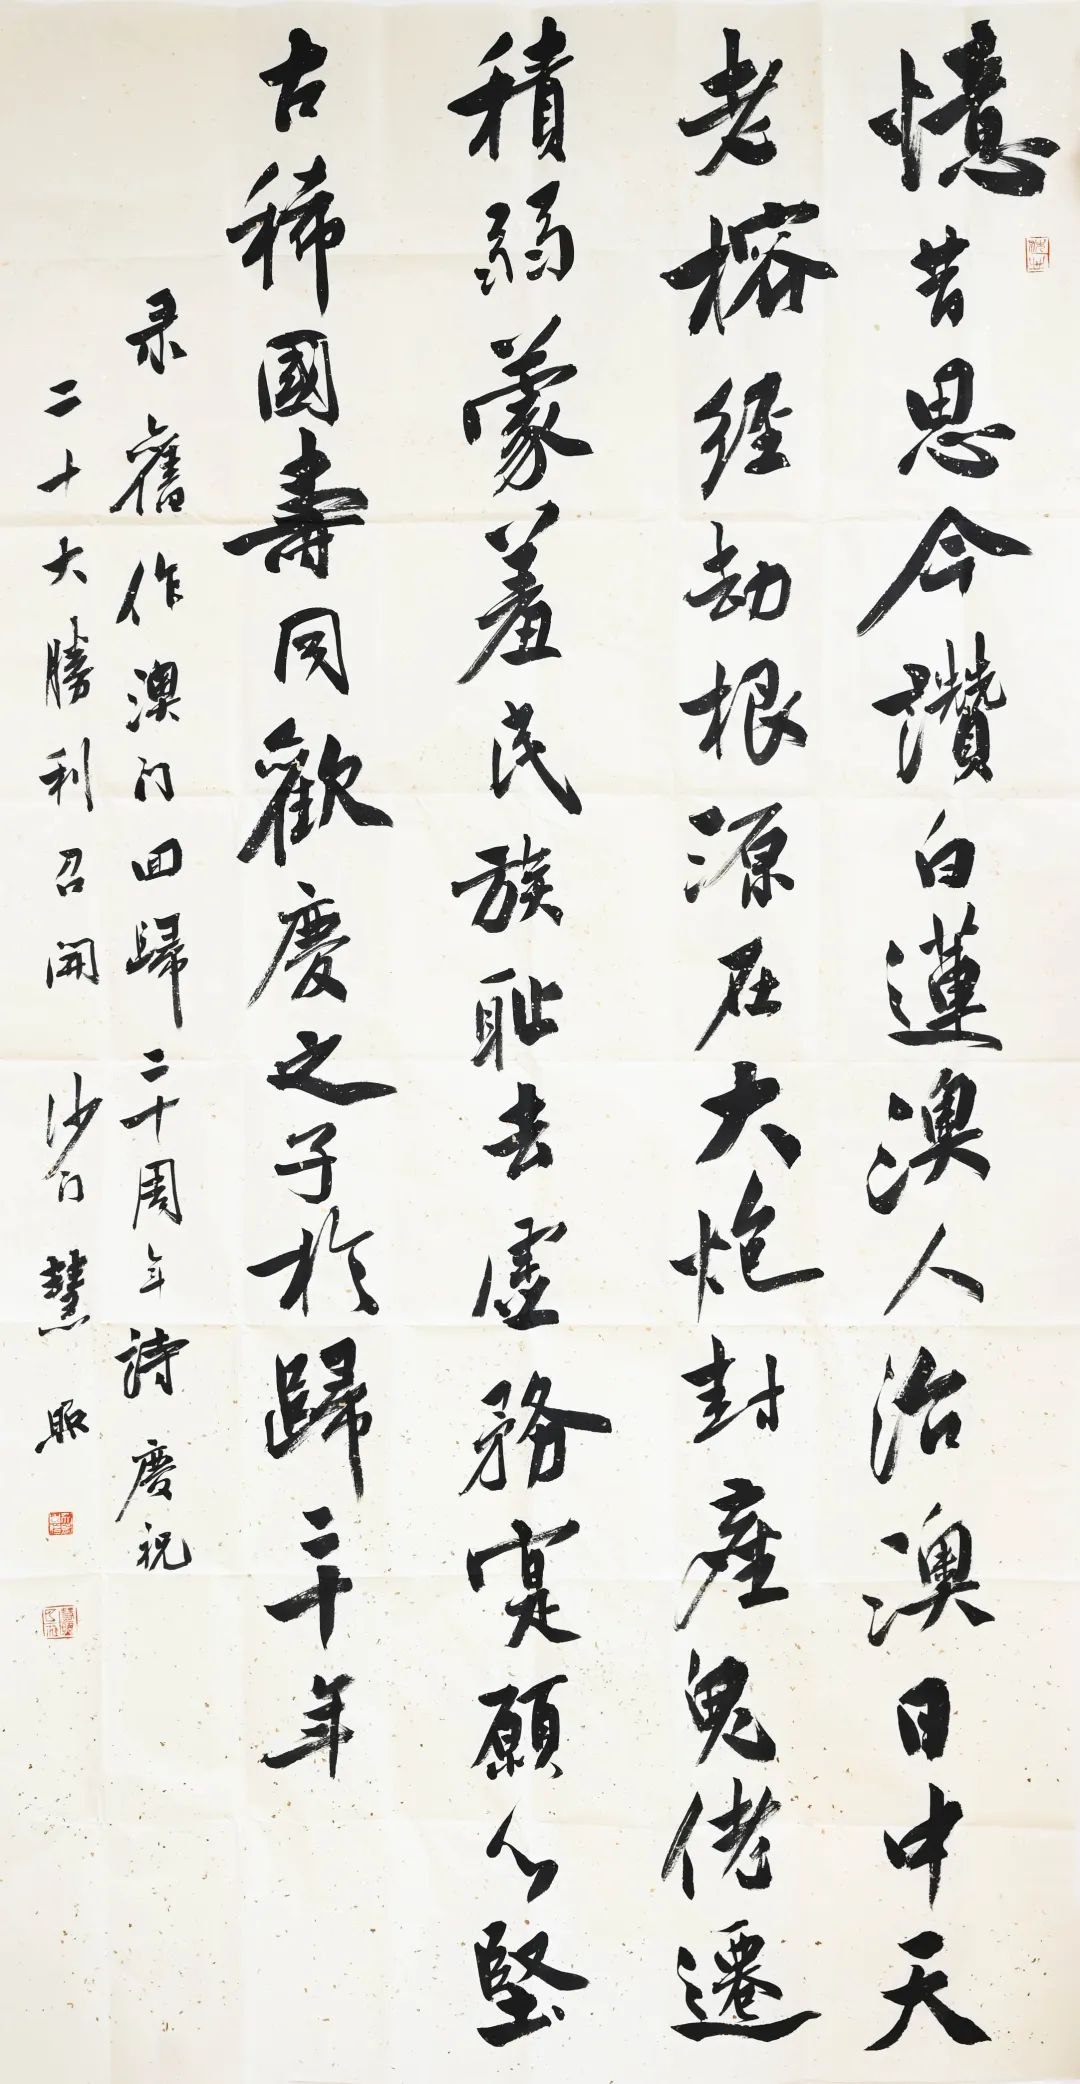 憶昔思今讚白蓮澳人治澳日中天
老榕经劫根源在大炮封塵鬼佬遷
積弱蒙羞民族耻去虛務寔願心堅
古稀國壽同歡慶之子於歸二十年
录舊作澳门回歸二十周年詩慶祝
二十大勝利召開 沙门慧照